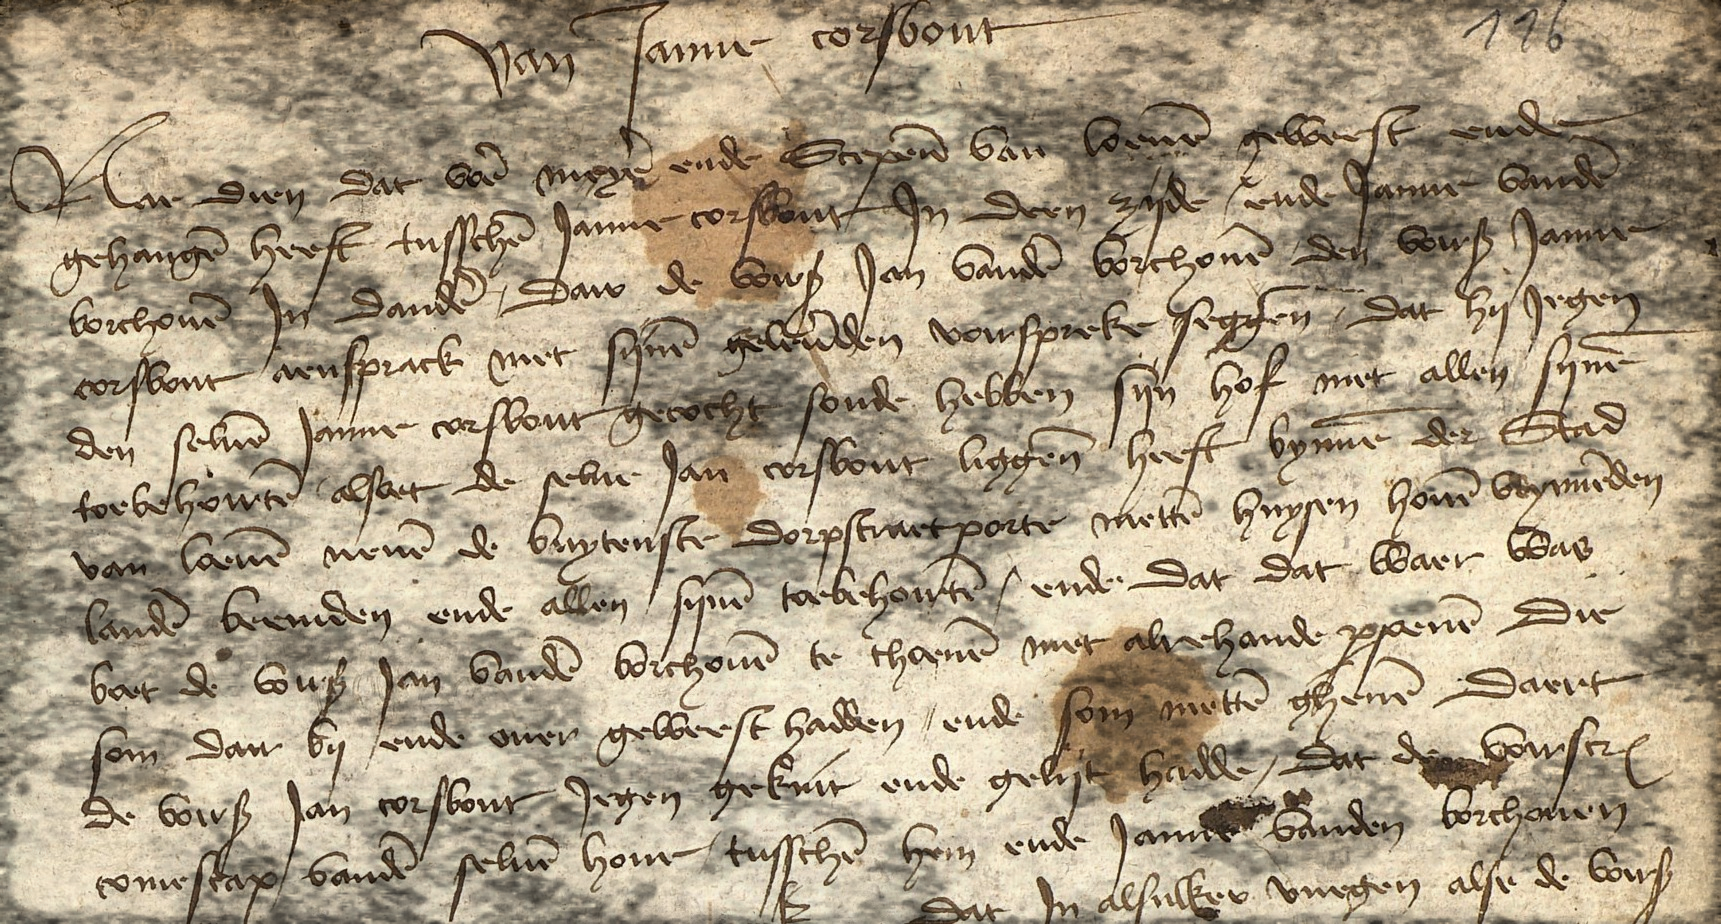 Van Janne corsbout
116
Naer dien dat voer meyer ende Scepenen van loeuen geweest ende
gehangen heeft tusschen Janne corsbout In deen zijde / ende Janne vanden
borchouen In dander / Daer de vors Jan vanden borchouen den vors Janne
corsbout aensprack met sijnen geleenden voirspreke seggen / dat hij Jegen
den seluen Janne corsbout gecocht soude hebben sijn hof met allen sijnen
toebehoirten alsoet de selue Jan corsbout liggen heeft bynnen der Stad
van loeuen neuen de buytenste dorpstraetporte metten huysen houen wymeden
landen beemden ende allen sijnen toebehoirten / ende dat dat waer was
boet de vors Jan vanden borchouen te thoenen met alrehande ppenen Die
som daer bij ende ouer geweest hadden / ende som metten ghenen Daert
de vors Jan corsbout Jegen gekint ende gelijt hadde / dat de voirscr
comescap vanden seluen houe / tusschen hem ende Janne vanden borchouen
dat In alsulker vuegen alse de vors